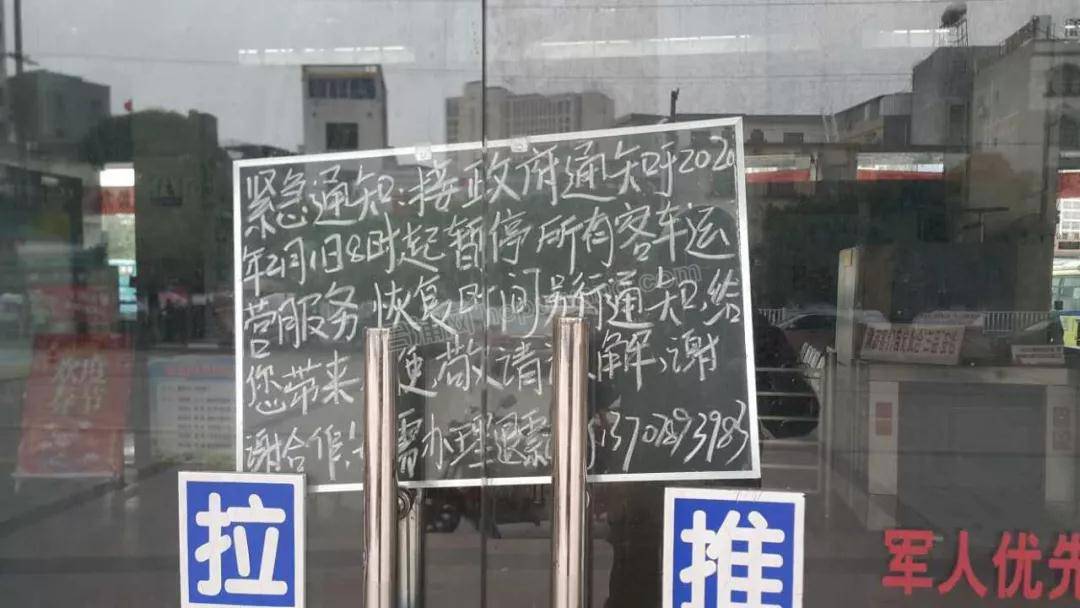 紧急通知:接政府通知于2020
年2月1日8时起暂停所有客车运
营服务恢复时间另行通知给
您带来 便敬请 解,谢
谢合作! 需办理退票 13701893983
拉
推
军人优先
欢度
春节